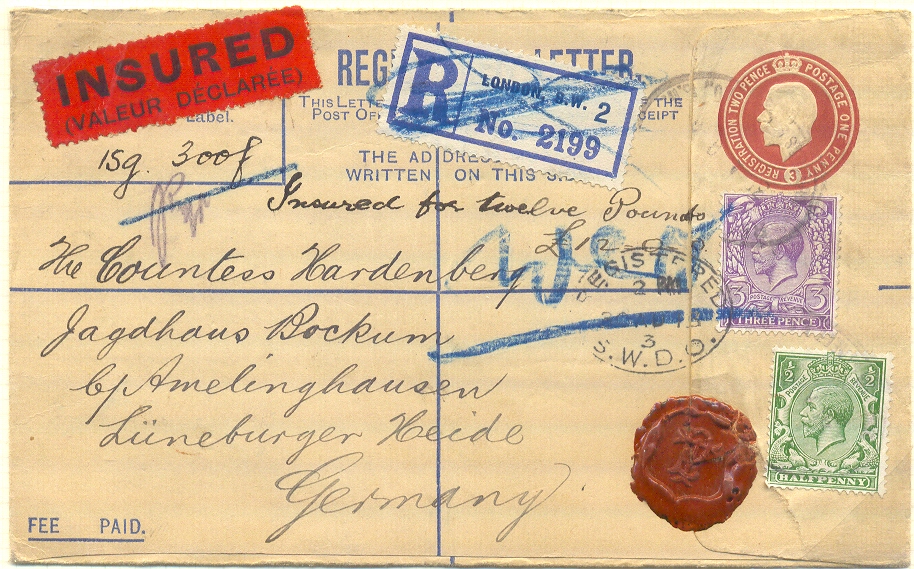 INSURED
(VALEUR DÉCLARÉE)
Label.
REG LETTER.
THIS LETTE THE
POST OF CEIPT
R
LONDON, S.W. 2
No. 2199
THE ADDRES
WRITTEN ON THIS S
REGISTRATION TWO PENCE POSTAGE ONE PENNY
3
15g. 300f
Insured for twelve Pounds
£12-0-0
The Countess Hardenberg
Jagdhaus Bockum
b/Amelinghausen
Lüneburger Heide
Germany
REGISTERED
S.W.D.O.
3
3 3
POSTAGE REVENUE
THREE PENCE
½ ½
POSTAGE REVENUE
HALFPENNY
FEE PAID.